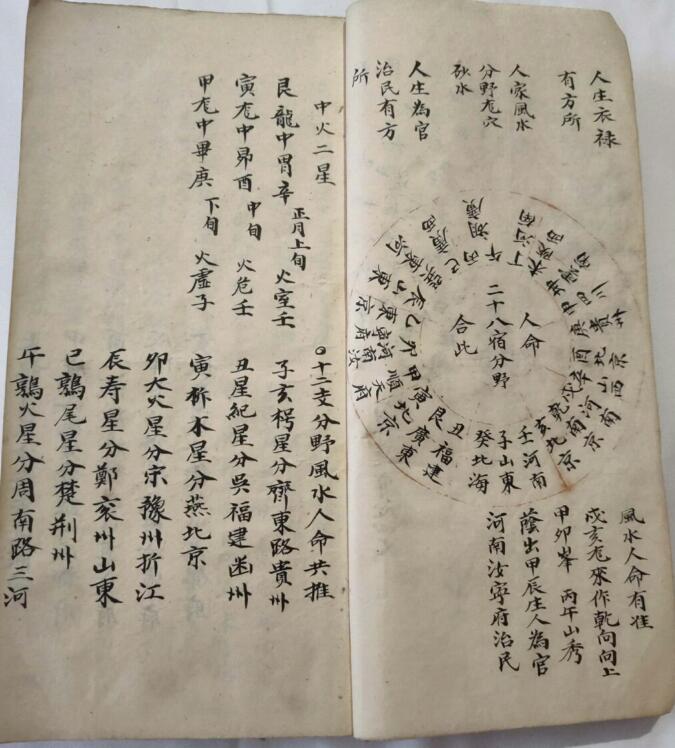 人生衣禄
有方所
人家風水
分野龙穴
砂水
人生為官
治民有方
所
人命
二十八宿分野
合此
壬河南
子山東
癸北海
丑福建
艮廣東
寅北京
風水人命有准
戌亥龙來作乾向向上
甲卯峯 丙午山秀
蔭出甲辰生人為官
河南汝寧府治民
中火二星
艮龍中胃辛 正月上旬 火室壬
寅龙中昴酉 中旬 火危壬
甲龙中畢庚 下旬 火虛子
○十二支分野風水人命共推
子亥枵星分齊東路貴州
丑星紀星分吳福建幽州
寅析木星分燕北京
卯大火星分宗豫州折江
辰寿星分鄭兖州山東
巳鶉尾星分楚荆州
午鶉火星分周南路三河